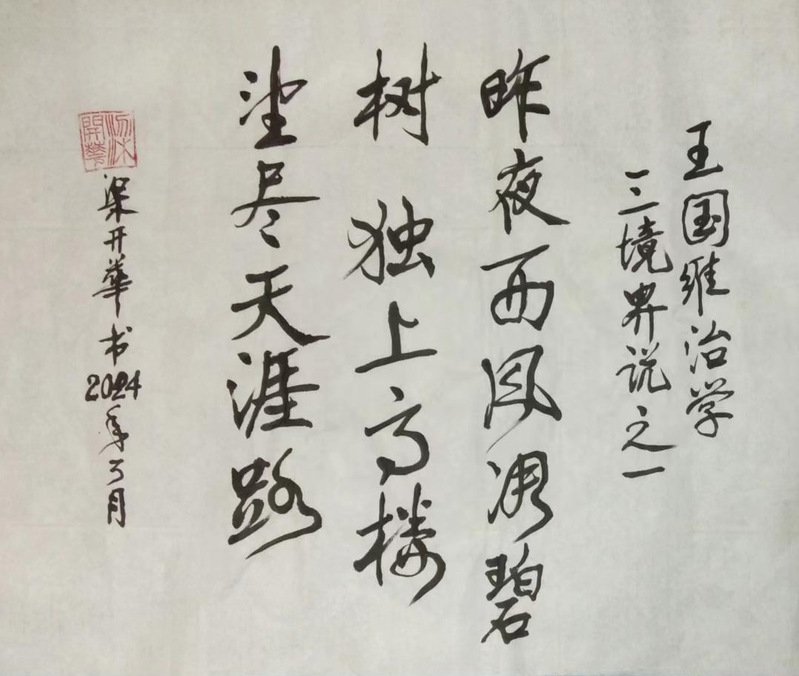 王国维治学
三境界说之一
昨夜西风凋碧
树 独上高楼
望尽天涯路
梁开華书2024年3月